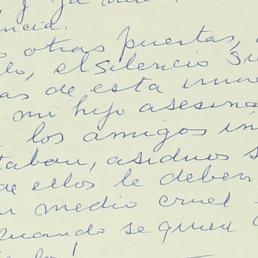 encia.
s otras puertas,
lo, el silencio su
as de esta inme
mi hijo asesina
los amigos in
taban, asiduos s
de ellos le deben
un medio cruel
cuando se quier
lo!